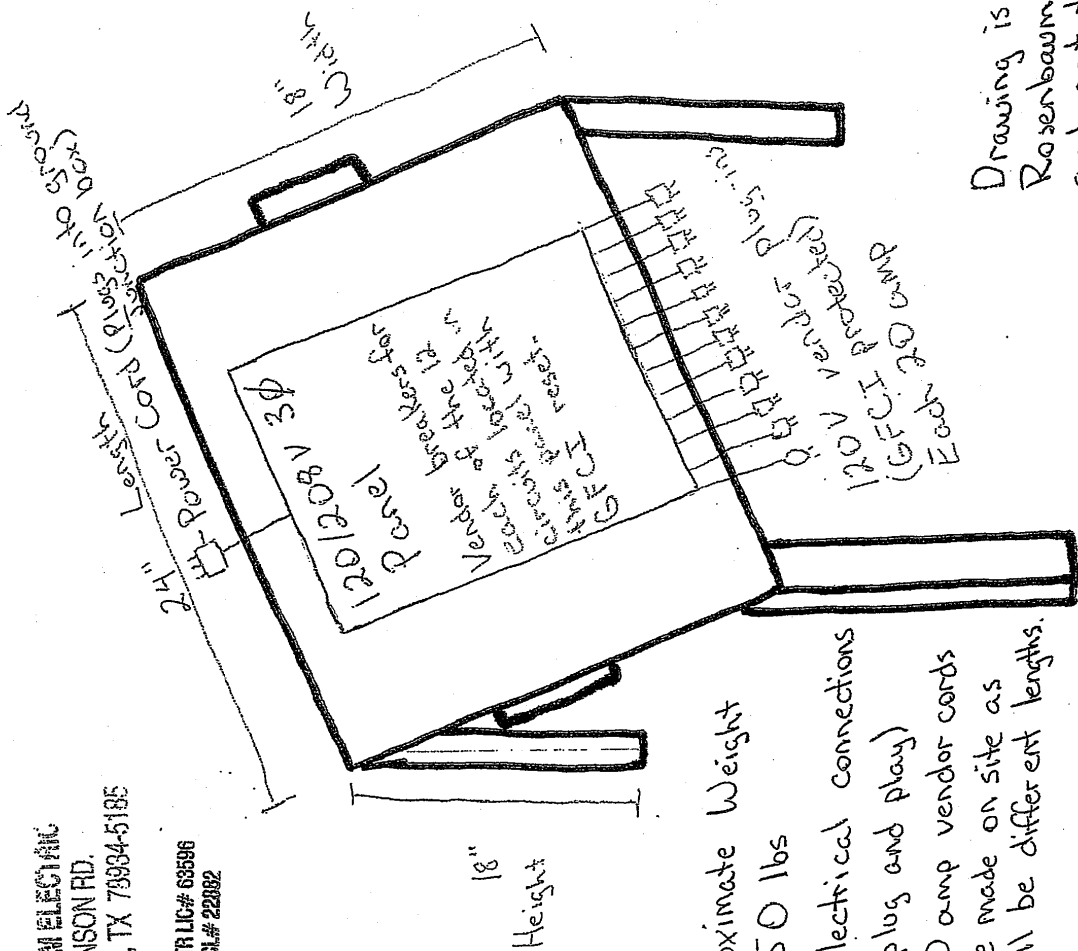 M ELECTRIC
NSON RD.
, TX 78934-5185
TR LIC# 63596
CL# 22882
24" Length
Power Cord (Plugs into ground
junction box)
18"
Width
120/208V 3ϕ
Panel
Vendor breakers for
each of the 12
circuits located in
this panel with
GFCI reset.
120V Vendor Plug-ins
(GFCI Protected)
Each 20 amp
18"
Height
oximate Weight
50 lbs
lectrical connections
plug and play)
0 amp vendor cords
e made on site as
ll be different lengths.
Drawing is
Rosenbaum